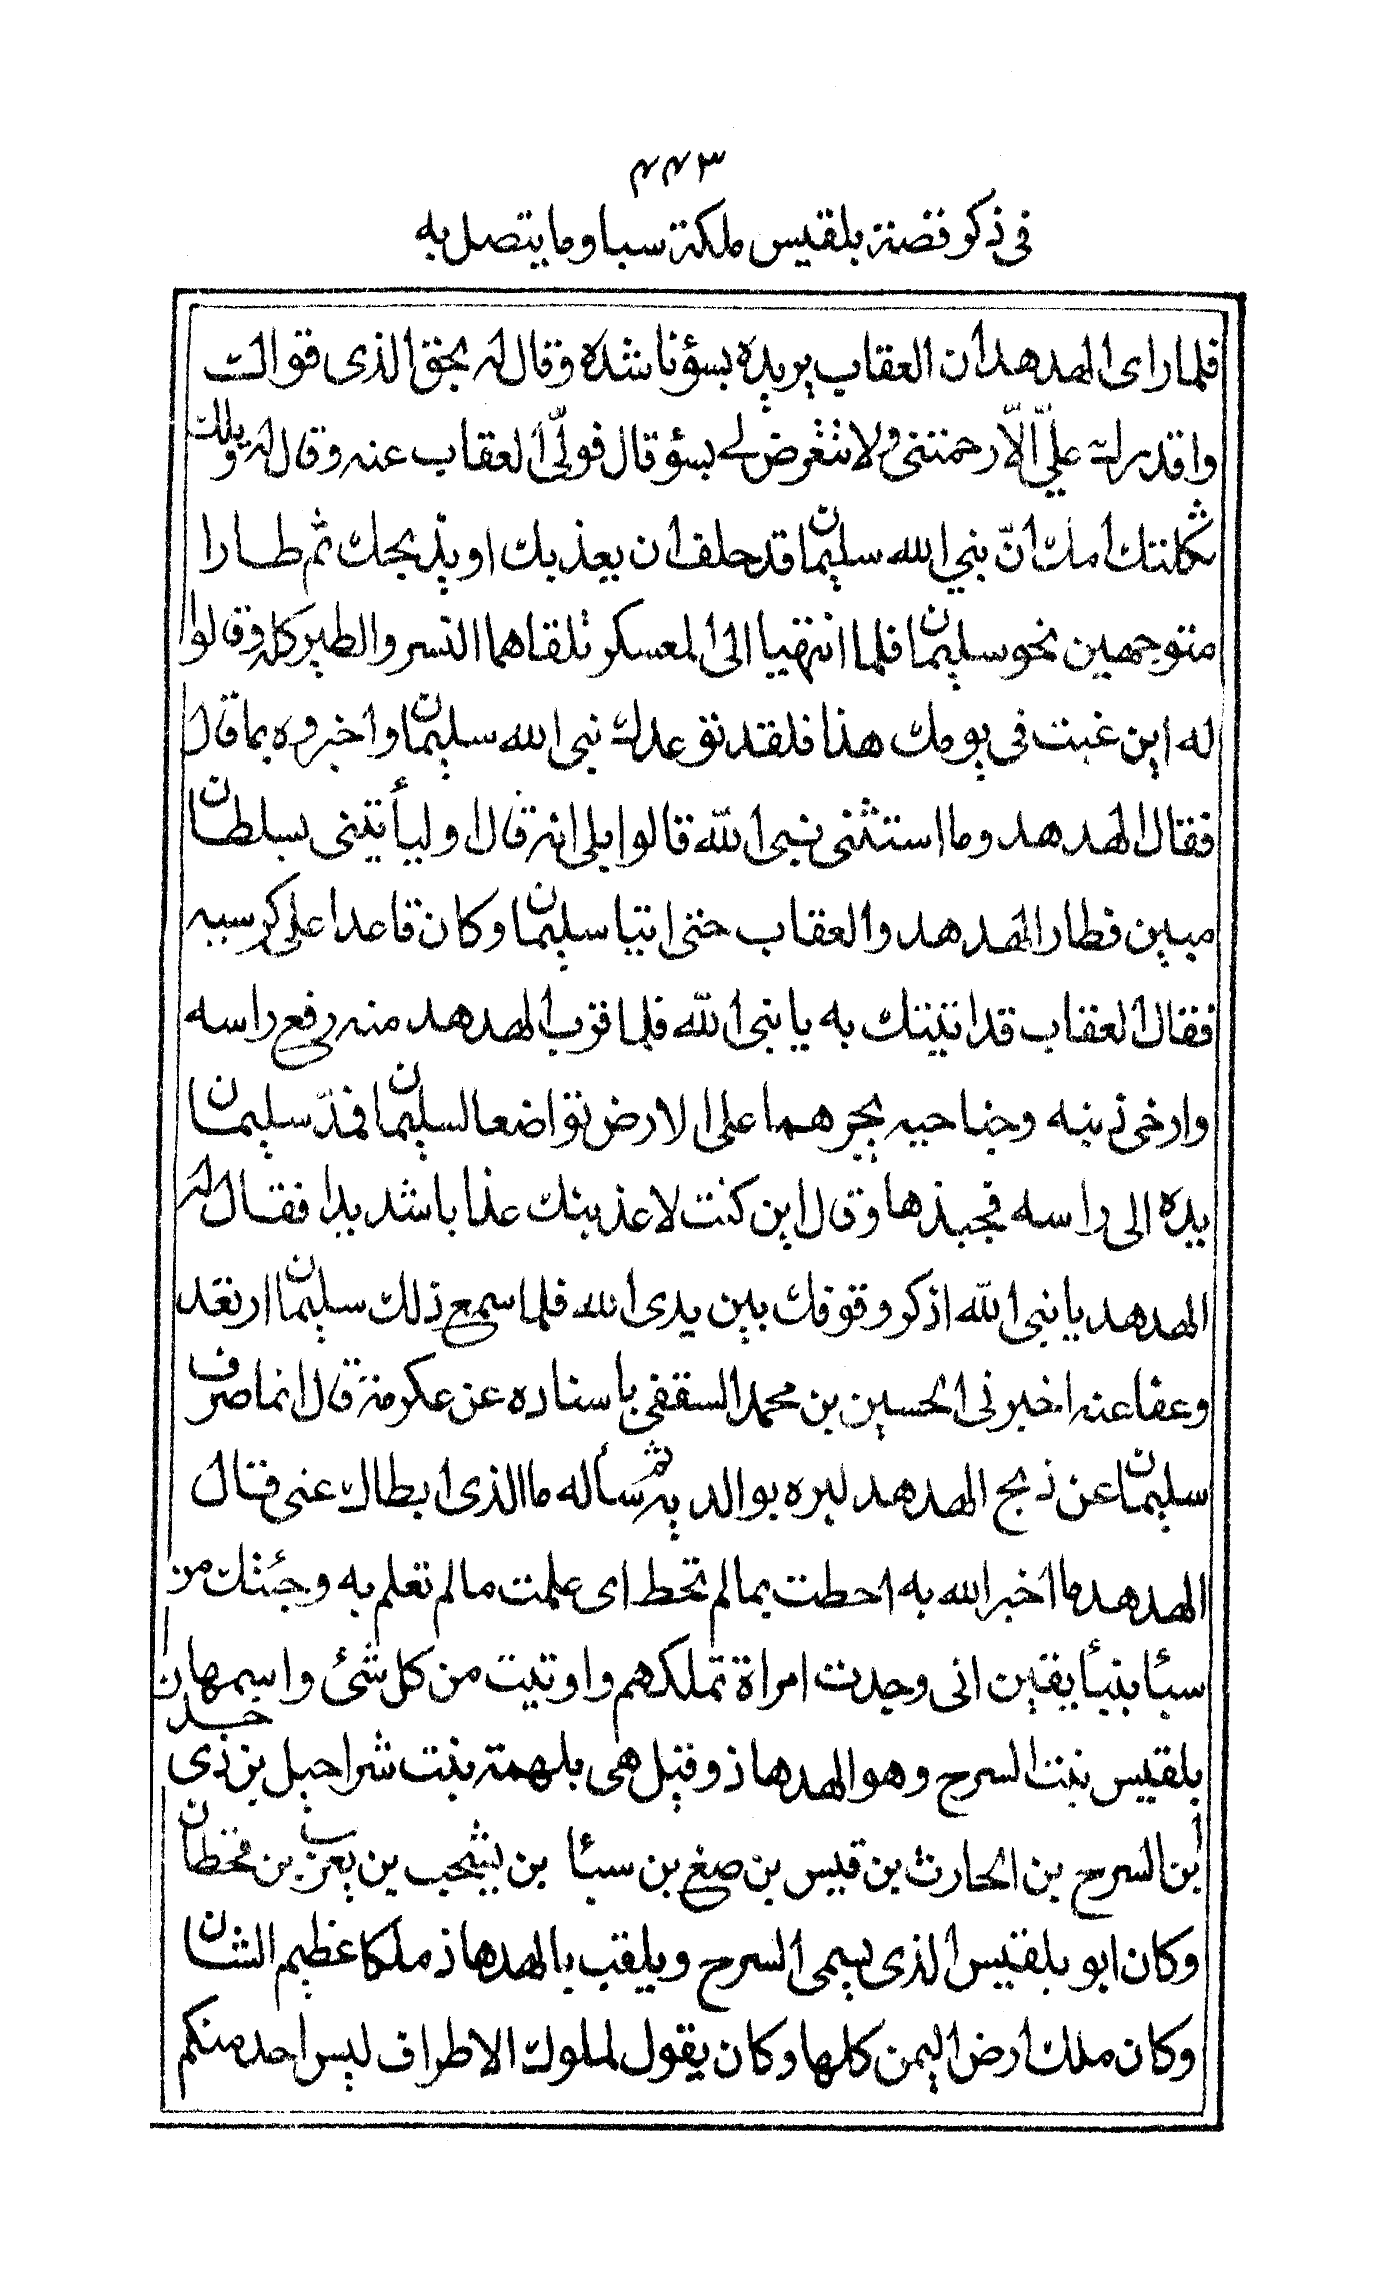 ٤٤٣
فى ذكر قصة بلقيس ملكة سبا وما يتصل به
فلما راى الهدهد ان العقاب يريده بسؤ ناشده وقال له بحق الذى قواك
واقدرك علىّ الّا رحمتنى ولا تتعرض لى بسؤ قال فولّى العقاب عنه وقال له ويلك
ثكلتك امك انّ نبى الله سليمان قد حلف ان يعذبك او يذبحك ثم طارا
متوجهين نحو سليمان فلما انتهيا الى المعسكر تلقاهما النسر والطير كله وقالوا
له اين غبت فى يومك هذا فلقد توعدك نبى الله سليمان واخبروه بما قال
فقال الهدهد وما استثنى نبى الله قالوا بلى انه قال او ليأتينى بسلطان
مبين فطار الهدهد والعقاب حتى اتيا سليمان وكان قاعدا على كرسيه
فقال العقاب قد اتيتك به يا نبى الله فلما قرب الهدهد منه رفع راسه
وارخى ذنبه وجناحيه يجرهما على الارض تواضعا لسليمان فمدّ سليمان
يده الى راسه فجبذها وقال اين كنت لاعذبنك عذابا شديدا فقال له
الهدهد يا نبى الله اذكر وقوفك بين يدى الله فلما سمع ذلك سليمان ارتعد
وعفا عنه اخبرنى الحسين بن محمد السقفى باسناده عن عكرمة قال انما صرف
سليمان عن ذبح الهدهد لبره بوالديه ثم سأله ما الذى ابطاك عنى فقال
الهدهد ما اخبر الله به احطت بما لم تحط اى علمت ما لم تعلم به وجئتك من
سبأ بنبأ يقين انى وجدت امراة تملكهم واوتيت من كل شئ واسمها
بلقيس بنت السرح وهو الهدهاذ وقيل هى بلهمة بنت شراحيل بن ذى جدن
بن السرح بن الحارث بن قيس بن صيفى بن سبأ بن يشجب بن يعرب بن قحطان
وكان ابو بلقيس الذى يسمى السرح ويلقب بالهدهاذ ملكا عظيم الشان
وكان ملك ارض اليمن كلها وكان يقول لملوك الاطراف ليس احد منكم